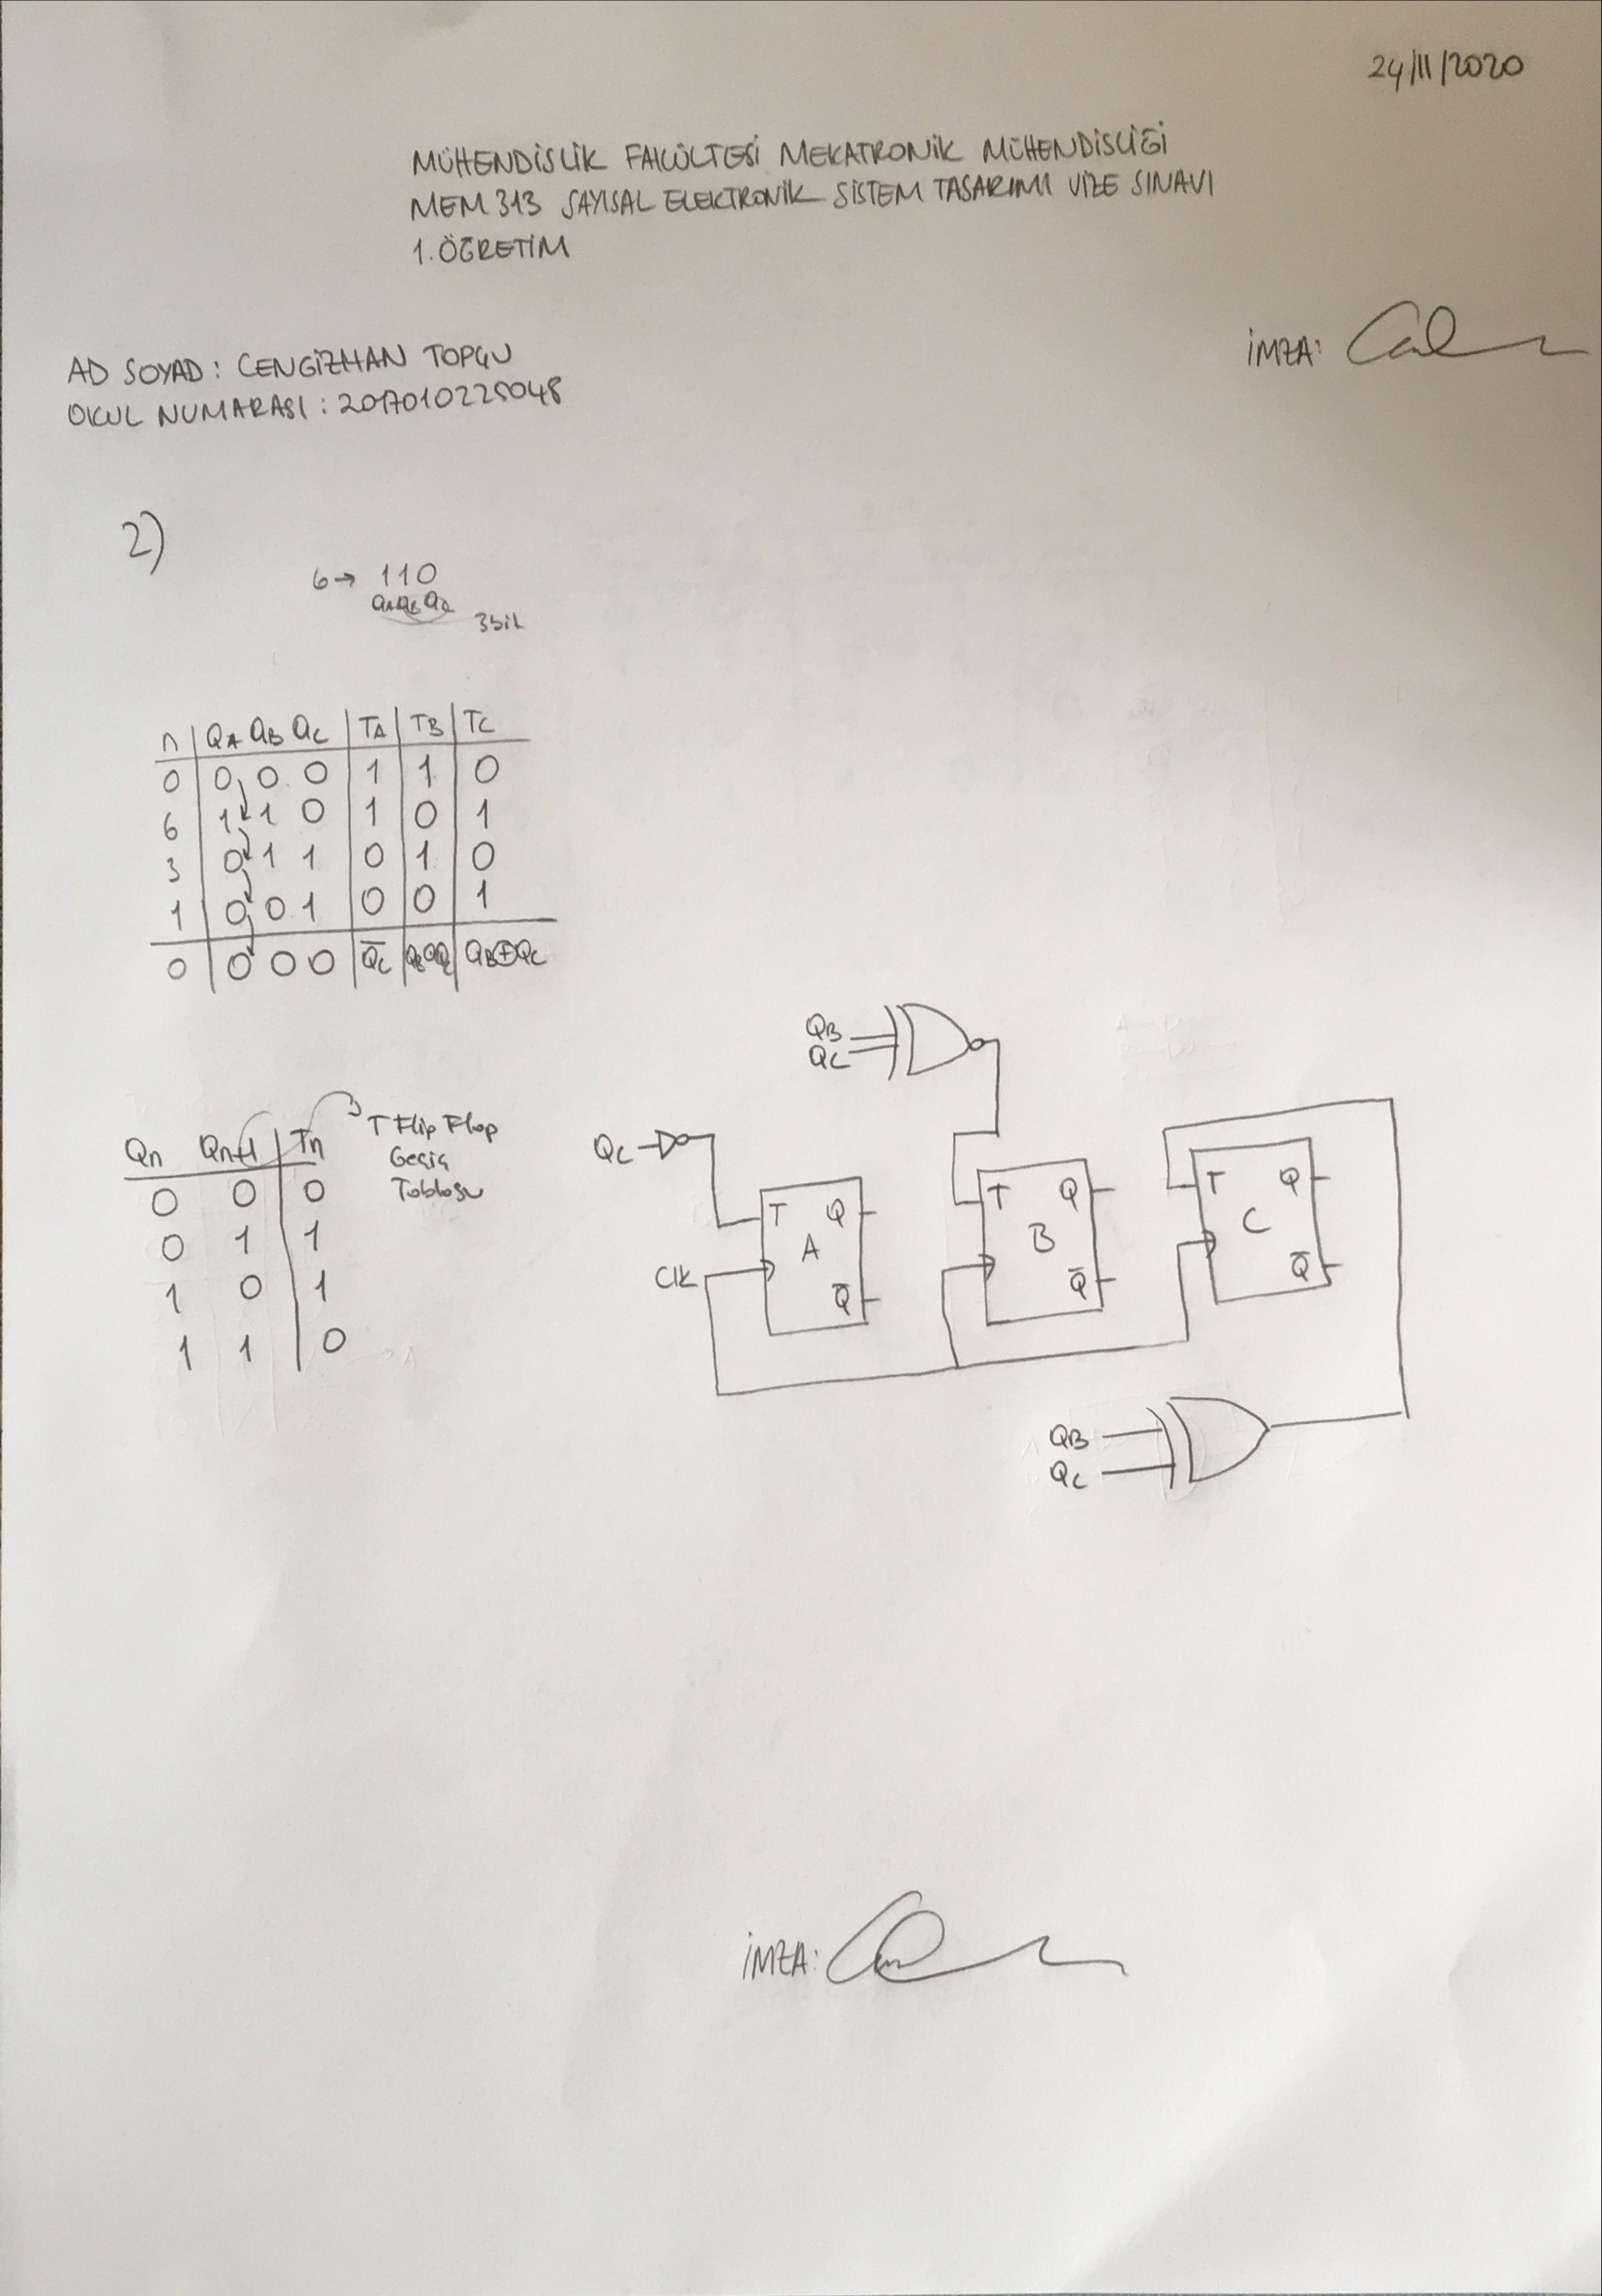 24/11/2020
MÜHENDİSLİK FAKÜLTESİ MEKATRONİK MÜHENDİSLİĞİ
MEM 313 SAYISAL ELEKTRONİK SİSTEM TASARIMI VİZE SINAVI
1. ÖĞRETİM
İMZA:
AD SOYAD : CENGİZHAN TOPÇU
OKUL NUMARASI : 2017010225048
2)
6→ 110
QA QB QC
3bit
n QA QB QC TA TB TC
0 0 0 0 1 1 0
6 1 1 0 1 0 1
3 0 1 1 0 1 0
1 0 0 1 0 0 1
0 0 0 0 Q̅C QB⊙QC QB⊕QC
QB
QC
Qn Qn+1 Tn
T Flip Flop
Geçiş
Tablosu
0 0 0
0 1 1
1 0 1
1 1 0
QC
T Q
A
Q̅
Clk
T Q
B
Q̅
T Q
C
Q̅
QB
QC
İMZA: